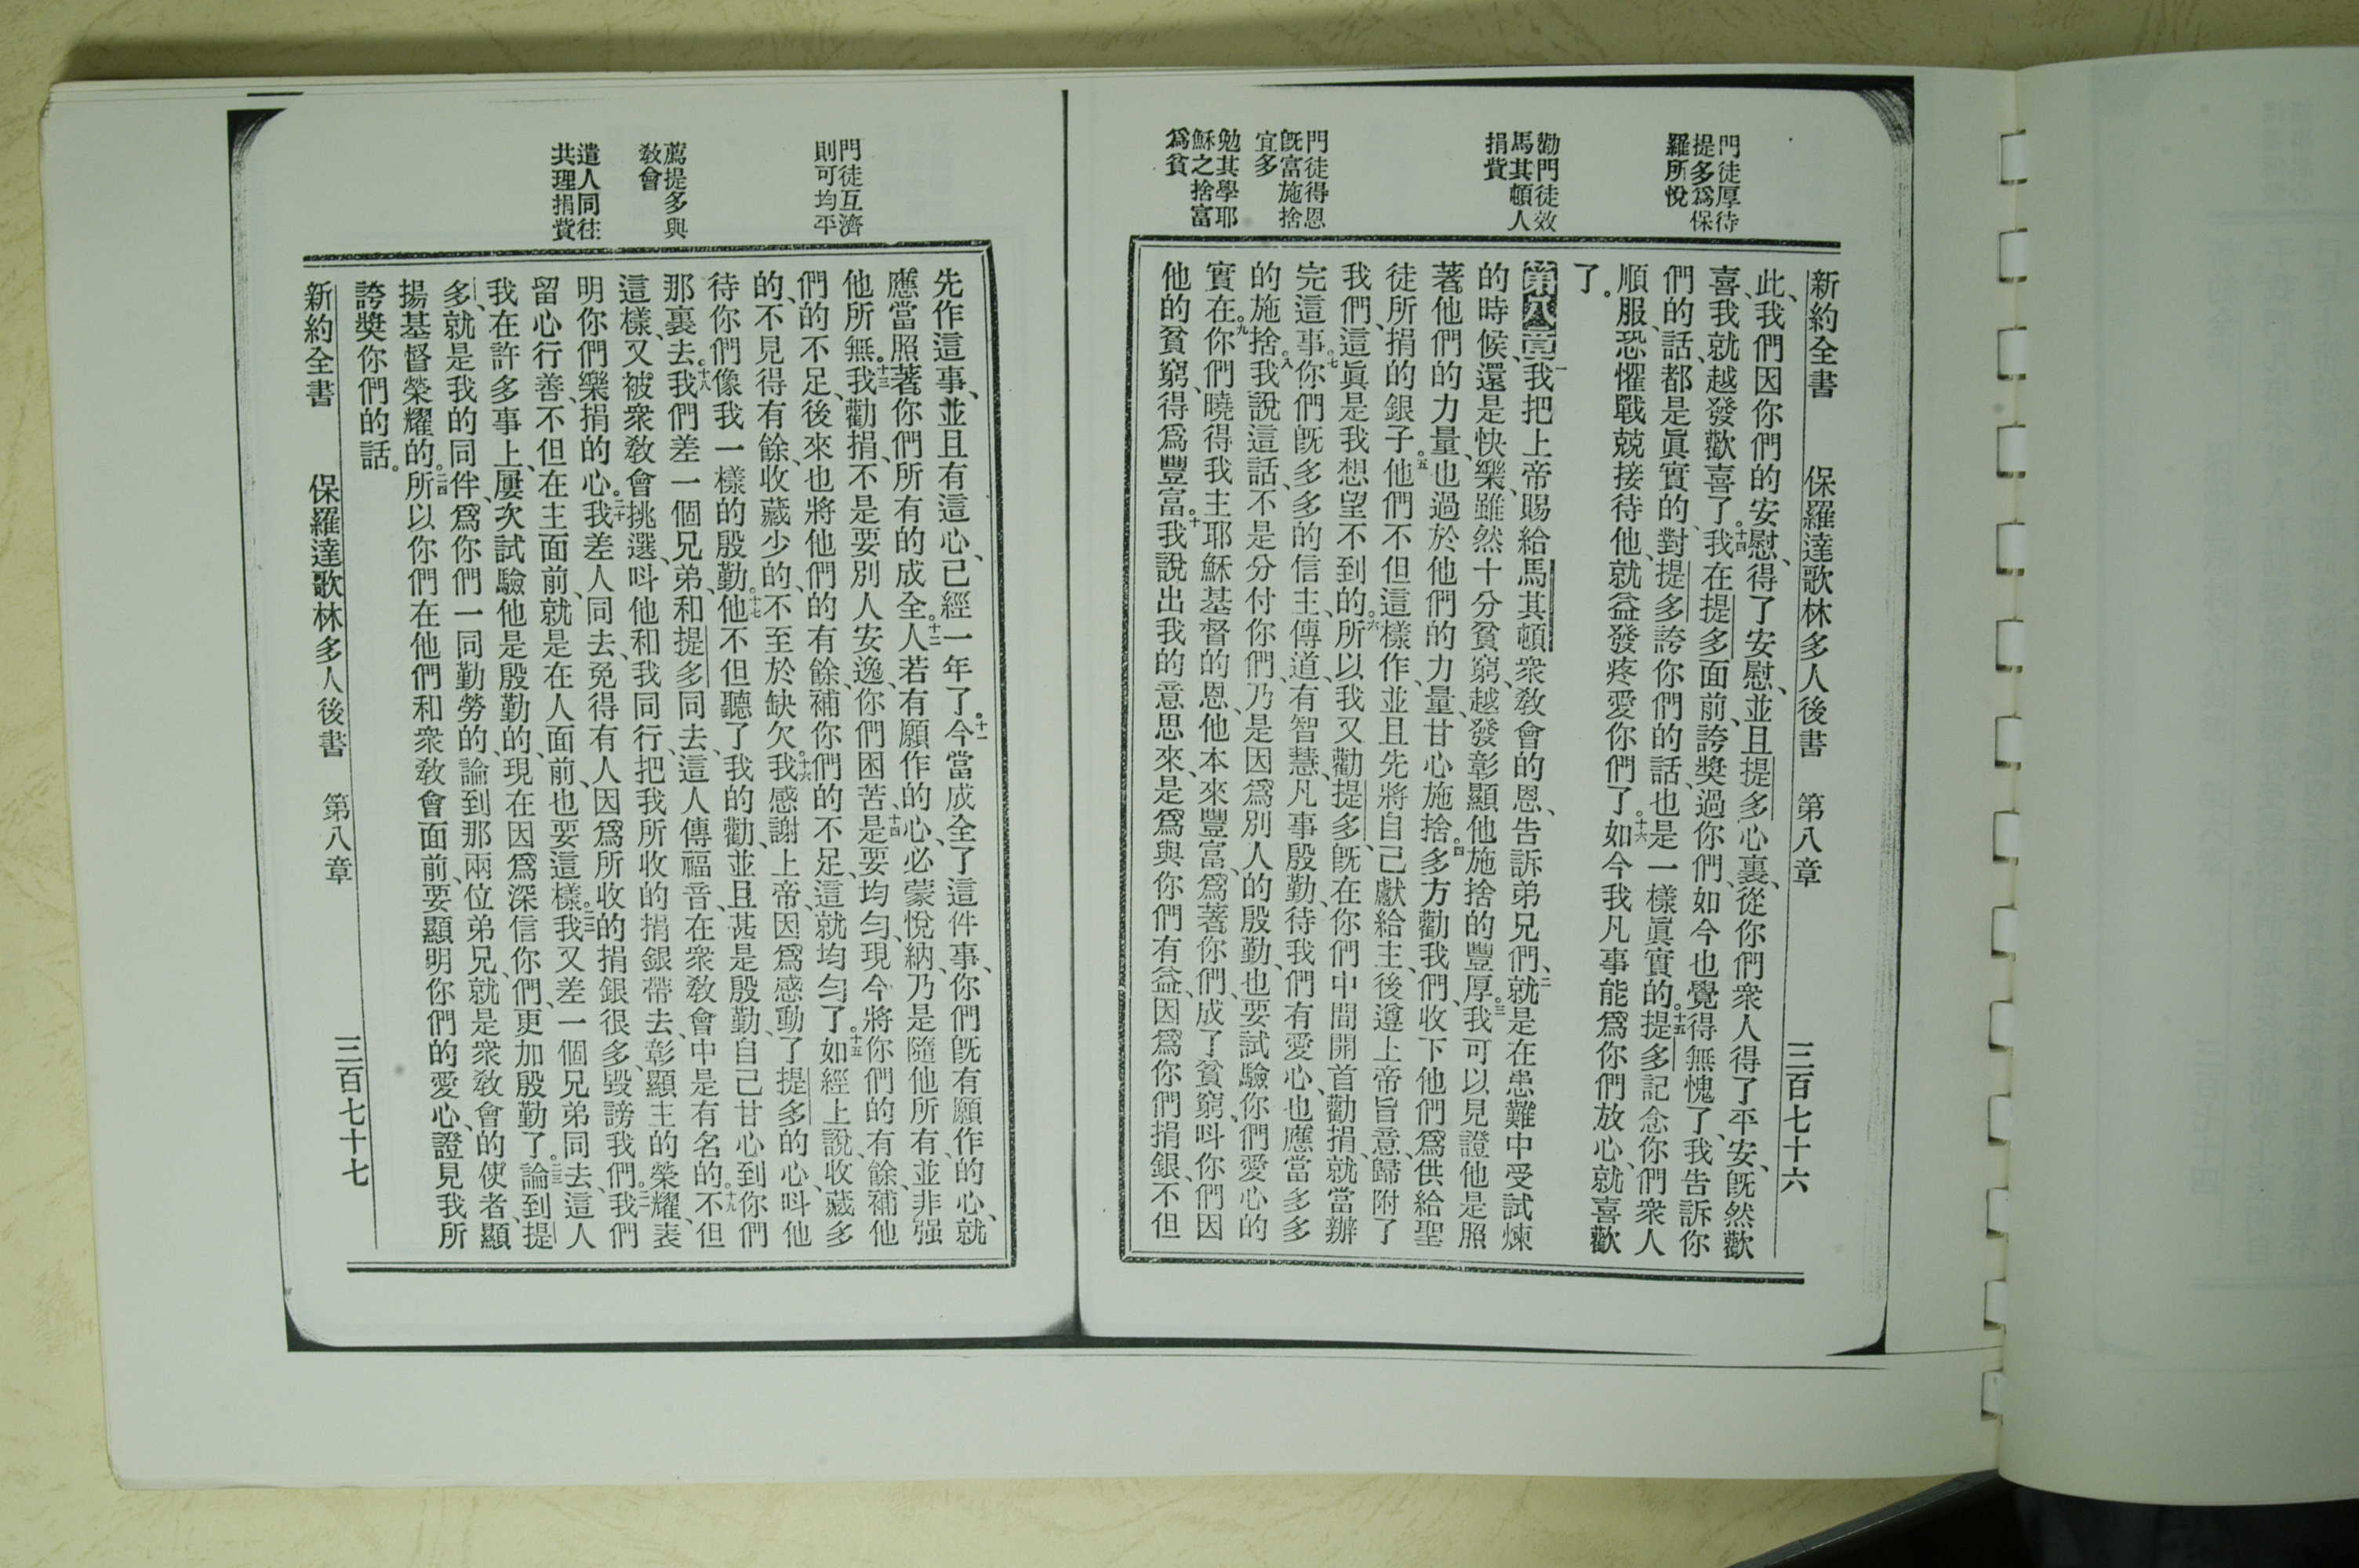 門徒厚待
提多爲保
羅所悅
勸門徒效
馬其頓人
捐費
門徒得恩
旣富施捨
宜多
勉其學耶
穌之捨富
爲貧
新約全書 保羅達歌林多人後書 第八章 三百七十六
此、我們因你們的安慰、得了安慰、並且提多心裏、從你們衆人得了平安、旣然歡
喜、我就越發歡喜了。十四我在提多面前、誇獎過你們、如今也覺得無愧了、我告訴你
們的話、都是眞實的、對提多誇你們的話、也是一樣眞實的。十五提多記念你們衆人
順服、恐懼戰兢接待他、就益發疼愛你們了。十六如今我凡事能爲你們放心、就喜歡
了。
第八章一我把上帝賜給馬其頓衆教會的恩、告訴弟兄們、二就是在患難中受試煉
的時候、還是快樂、雖然十分貧窮、越發彰顯他施捨的豐厚。三我可以見證他是照
著他們的力量、也過於他們的力量、甘心施捨。四多方勸我們、收下他們爲供給聖
徒所捐的銀子。五他們不但這樣作、並且先將自己獻給主、後遵上帝旨意、歸附了
我們、這眞是我想望不到的。六所以我又勸提多、旣在你們中間開首勸捐、就當辦
完這事。七你們旣多多的信主、傳道、有智慧、凡事殷勤、待我們有愛心、也應當多多
的施捨。八我說這話、不是分付你們、乃是因爲別人的殷勤、也要試驗你們愛心的
實在。九你們曉得我主耶穌基督的恩、他本來豐富、爲著你們、成了貧窮、呌你們因
他的貧窮、得爲豐富。十我說出我的意思來、是爲與你們有益、因爲你們捐銀、不但
門徒互濟
則可均平
薦提多與
敎會
遣人同往
共理捐費
先作這事、並且有這心、已經一年了。十一今當成全了這件事、你們旣有願作的心、就
應當照著你們所有的成全。十二人若有願作的心、必蒙悅納、乃是隨他所有、並非强
他所無。十三我勸捐、不是要別人安逸、你們困苦、十四是要均勻、現今將你們的有餘、補他
們的不足、後來也將他們的有餘、補你們的不足、這就均勻了。十五如經上說、收藏多
的、不見得有餘、收藏少的、不至於缺欠。十六我感謝上帝、因爲感動了提多的心、呌他
待你們像我一樣的殷勤。十七他不但聽了我的勸、並且甚是殷勤、自己甘心到你們
那裏去。十八我們差一個兄弟、和提多同去、這人傳福音、在衆敎會中是有名的。十九不但
這樣、又被衆敎會挑選、呌他和我同行、把我所收的捐銀帶去、彰顯主的榮耀、表
明你們樂捐的心。二十我差人同去、免得有人因爲所收的捐銀很多、毀謗我們。二一我們
留心行善、不但在主面前、就是在人面前、也要這樣。二二我又差一個兄弟同去、這人
我在許多事上、屢次試驗他是殷勤的、現在因爲深信你們、更加殷勤了。二三論到提
多、就是我的同伴、爲你們一同勤勞的、論到那兩位弟兄、就是衆敎會的使者、顯
揚基督榮耀的。二四所以你們在他們和衆敎會面前、要顯明你們的愛心、證見我所
誇獎你們的話。
新約全書 保羅達歌林多人後書 第八章 三百七十七